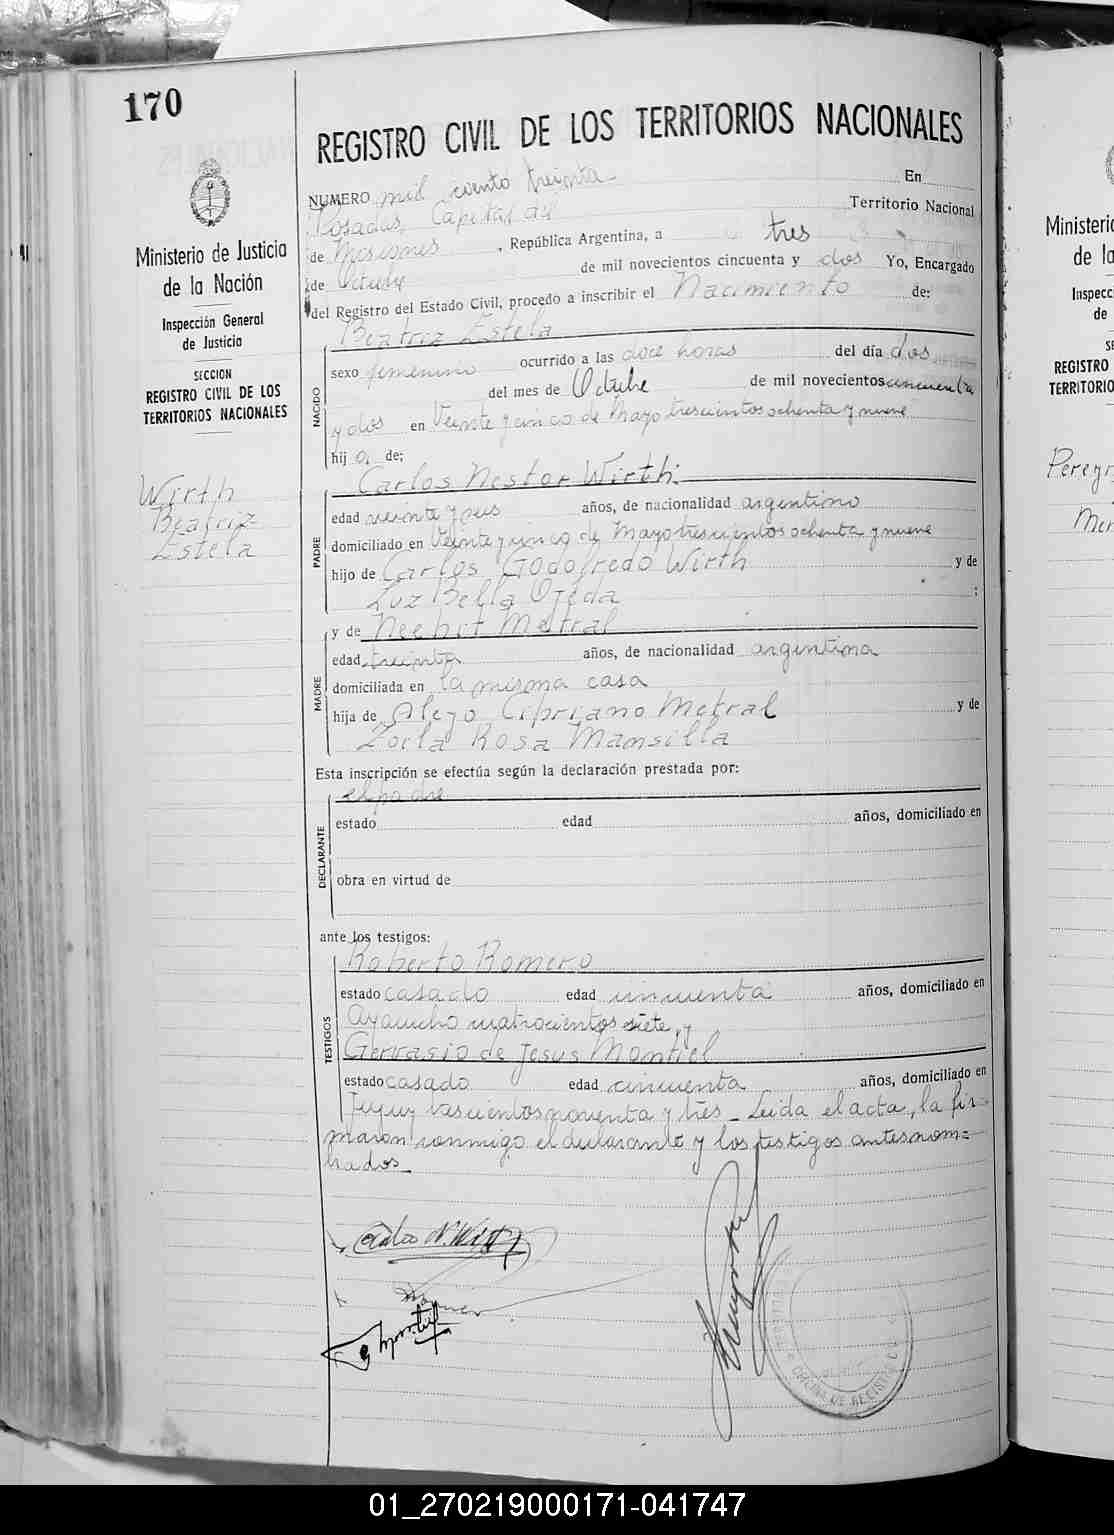 170
REGISTRO CIVIL DE LOS TERRITORIOS NACIONALES
Ministerio de Justicia
de la Nación
Inspección General
de Justicia
SECCION
REGISTRO CIVIL DE LOS
TERRITORIOS NACIONALES
Wirth
Beatriz
Estela
NUMERO mil ciento treinta En
Posadas, Capital del Territorio Nacional
de Misiones, República Argentina, a tres
de Octubre de mil novecientos cincuenta y dos Yo, Encargado
del Registro del Estado Civil, procedo a inscribir el Nacimiento de:
Beatriz Estela
NACIDO
sexo femenino ocurrido a las doce horas del día dos
del mes de Octubre de mil novecientos cincuenta
y dos en Veinte y cinco de Mayo trescientos ochenta y nueve
hija de;
Carlos Nestor Wirth.
PADRE
edad veinte y seis años, de nacionalidad argentino
domiciliado en Veinte y cinco de Mayo trescientos ochenta y nueve
hijo de Carlos Godofredo Wirth y de
Luz Bella Ojeda ;
y de Metral
MADRE
edad treinta años, de nacionalidad argentina
domiciliada en la misma casa
hija de Alejo Cipriano Metral y de
Zoila Rosa Mansilla
Esta inscripción se efectúa según la declaración prestada por:
el padre
DECLARANTE
estado edad años, domiciliado en
obra en virtud de
ante los testigos:
Roberto Romero
TESTIGOS
estado casado edad cincuenta años, domiciliado en
Ayacucho cuatrocientos siete, y
Gervasio de Jesus Montiel
estado casado edad cincuenta años, domiciliado en
Jujuy noventa y tres_ Leida el acta, la fir-
maron conmigo el declarante y los testigos antesnom=
brados_
N. Wirth
OFICINA DE REGISTRO
Ministerio
de la
Inspecc
de
SE
REGISTRO
TERRITORIO
01_270219000171-041747